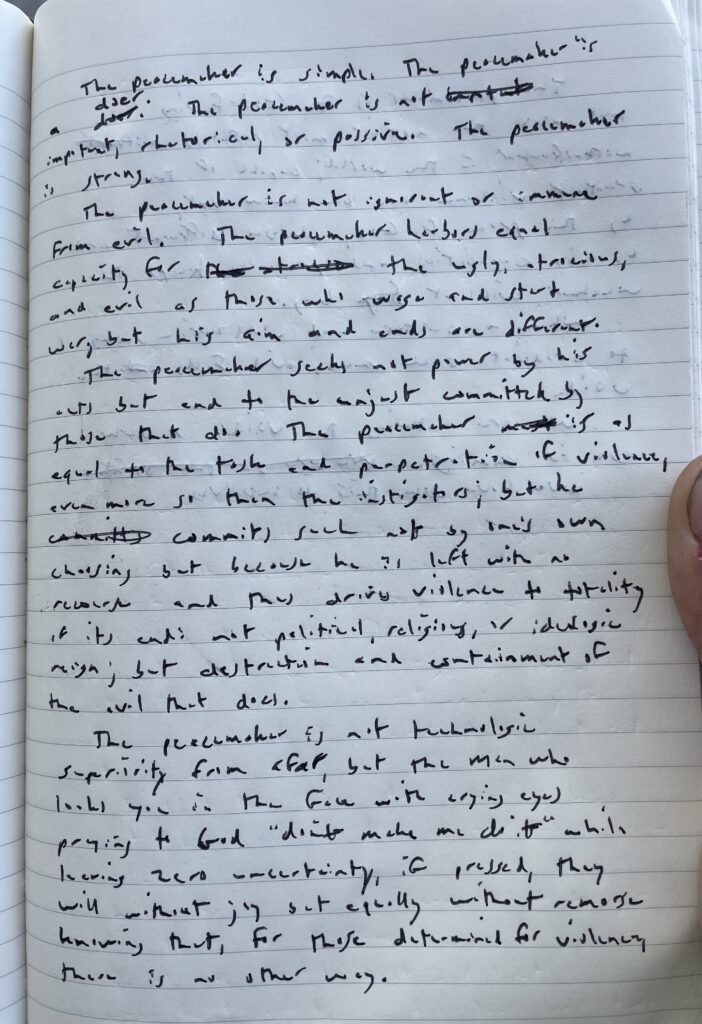 The peacemaker is simple. The peacemaker is
a doer. The peacemaker is not
impotent, rhetorical, or passive. The peacemaker
is strong.
The peacemaker is not ignorant or immune
from evil. The peacemaker harbors equal
capacity for the ugly, atrocious,
and evil as those who wage and start
wars but his aim and ends are different.
The peacemaker seeks not power by his
acts but end to the unjust committed by
those that do. The peacemaker is as
equal to the task and perpetration of violence,
even more so then the instigators; but he
commits such not by one's own
choosing but because he is left with no
recourse and thus drives violence to totality
if its end: not political, religious, or idelogic
reign; but destruction and containment of
the evil that does.
The peacemaker is not technologic
superirity from afar, but the man who
looks you in the face with crying eyes
praying to God "don't make me do it" while
leaving zero uncertainty, if pressed, they
will without joy but equally without remorse
knowing that, for those determined for violence,
there is no other way.